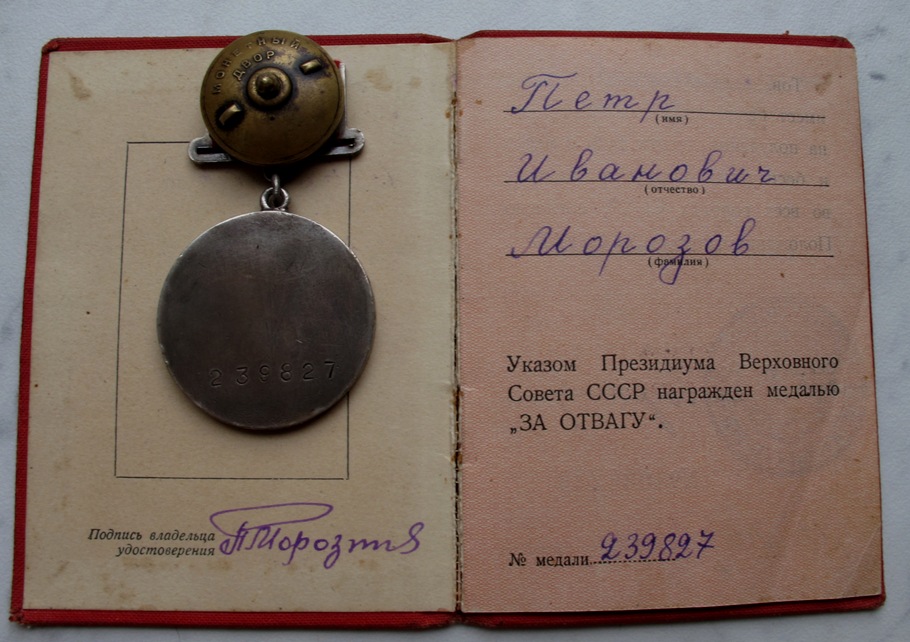 МОНЕТНЫЙ
ДВОР
239827
Подпись владельца
удостоверения
Петр
(имя)
Иванович
(отчество)
Морозов
(фамилия)
Указом Президиума Верховного
Совета СССР награжден медалью
„ЗА ОТВАГУ“.
№ медали 239827